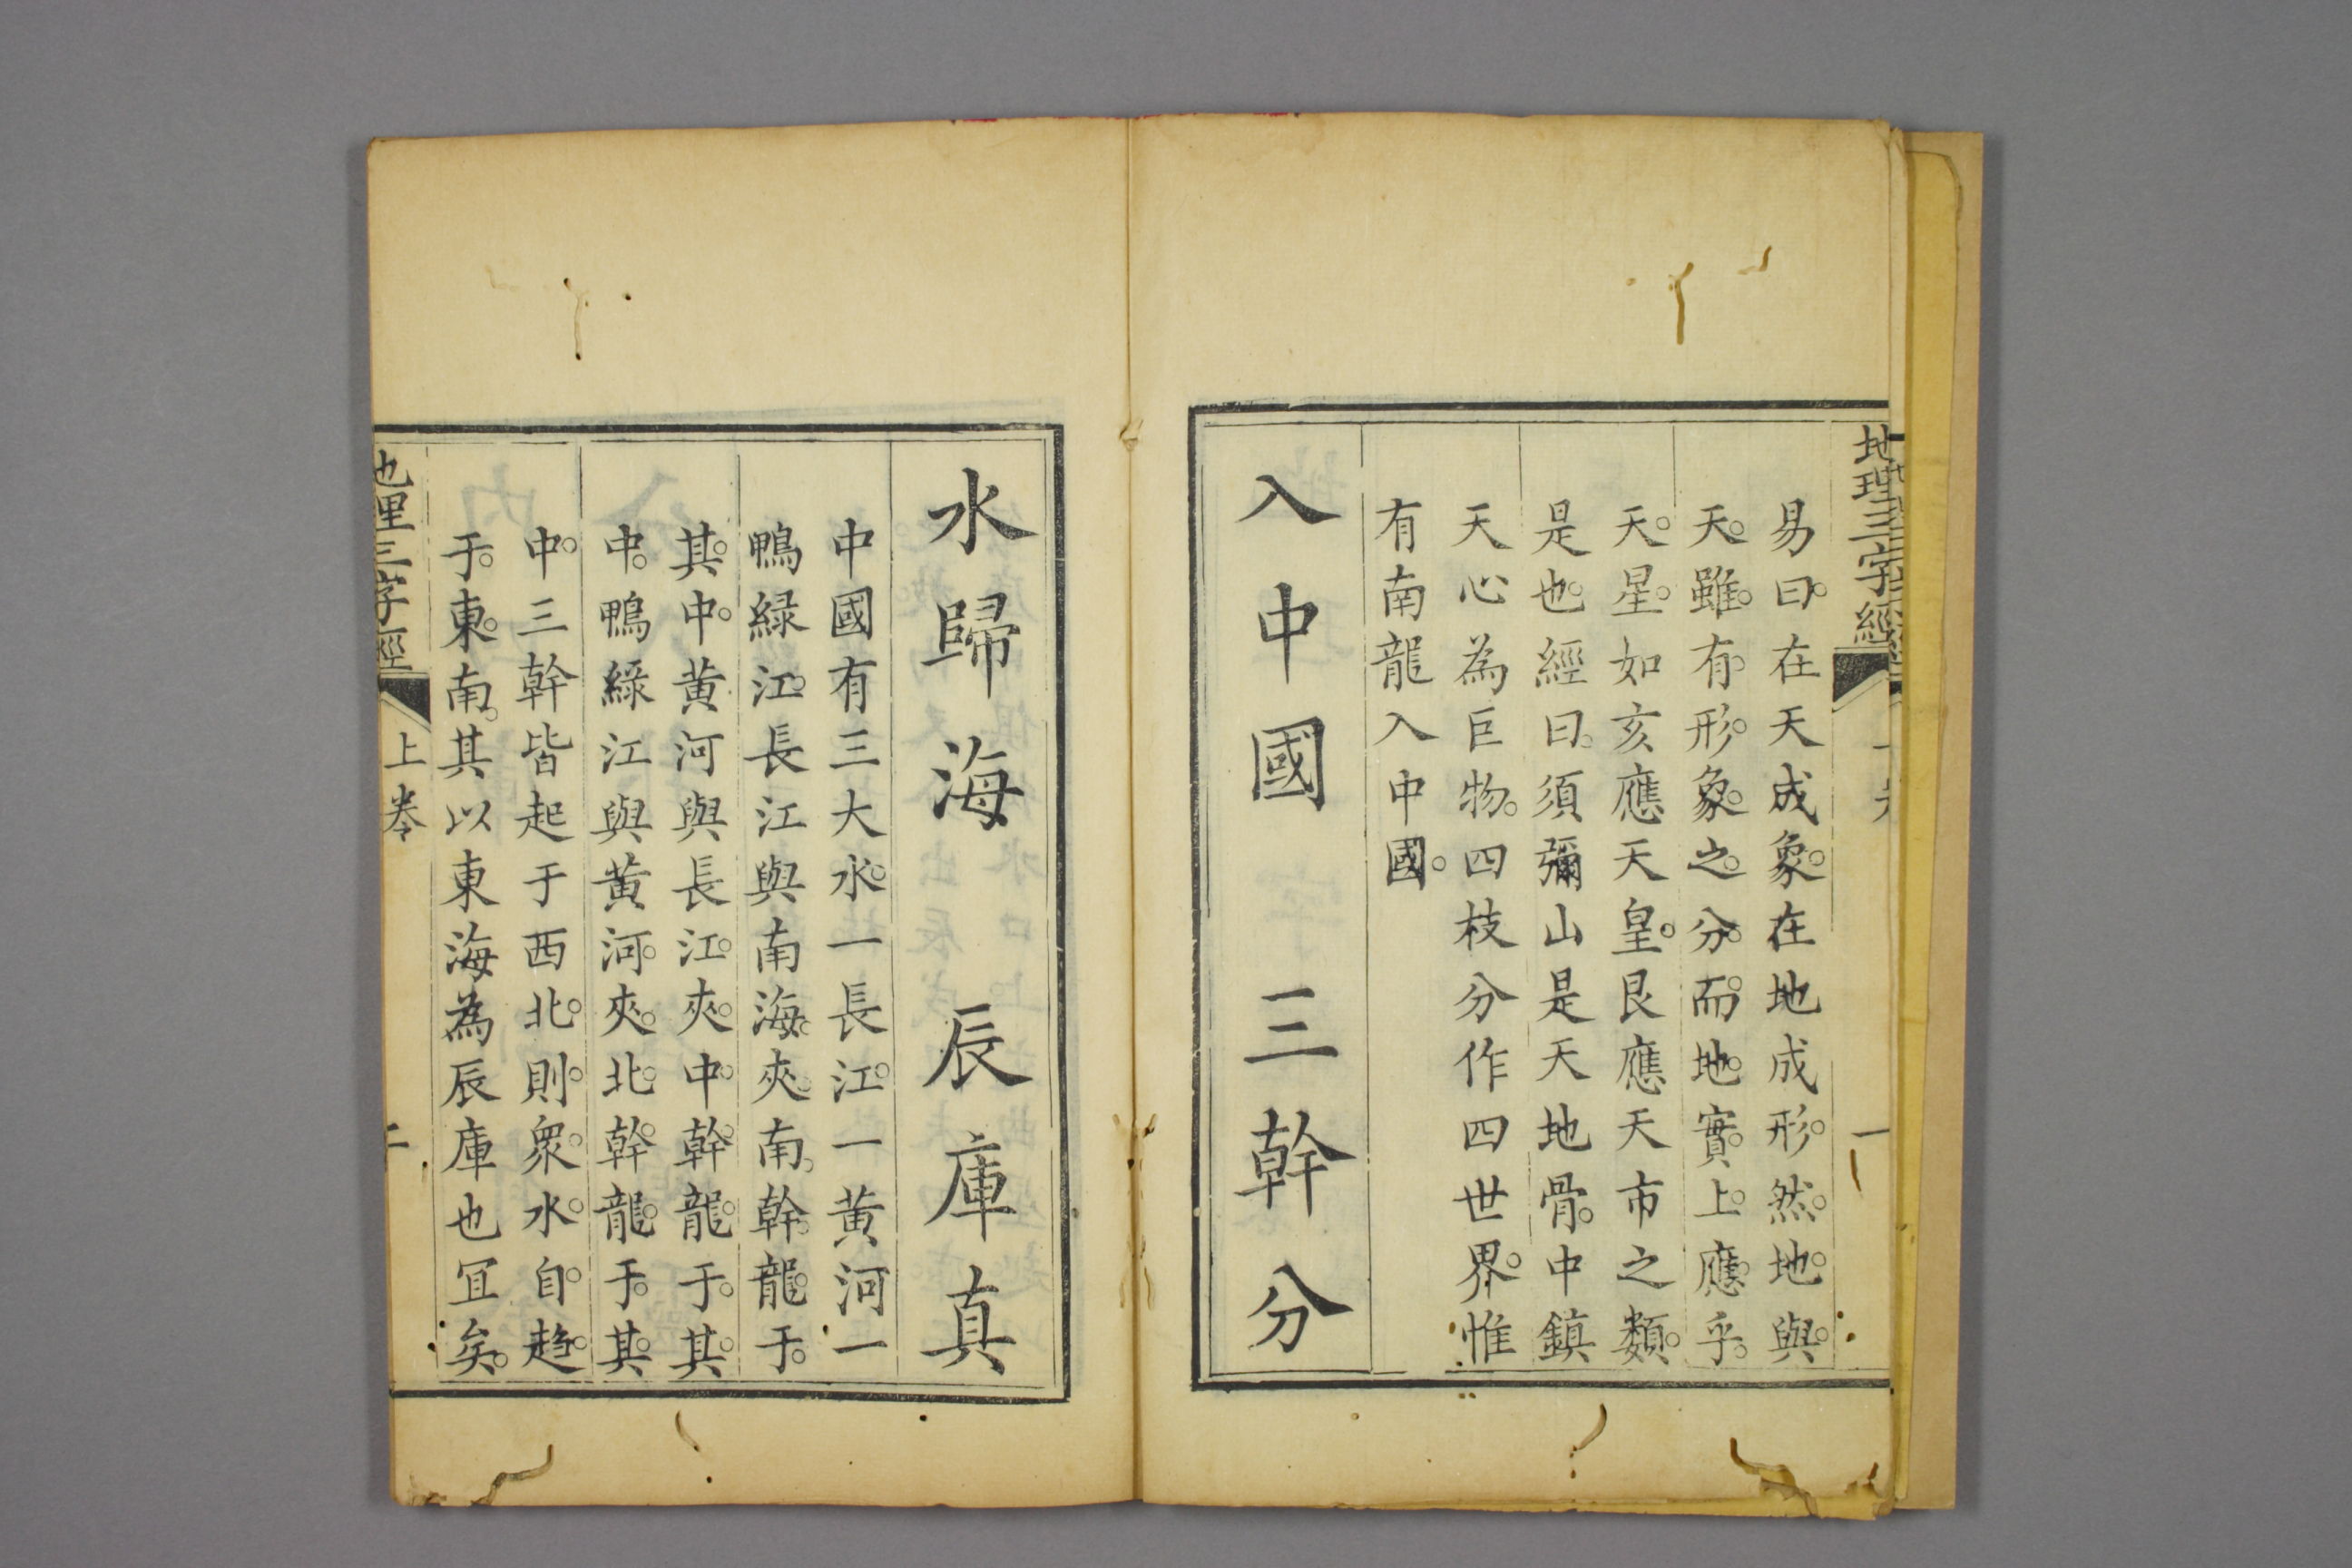 地理三字經
一
易曰。在天成象。在地成形。然。地。與。
天。雖。有。形。象。之。分。而。地。實。上。應。乎。
天。星。如亥應天皇。艮應天市之類。
是也。經曰。須彌山是天地骨。中鎮
天心為巨物。四枝分作四世界。惟
有南龍入中國。
入中國　三幹分
水歸海　辰庫真
中國有三大水。一長江。一黃河一
鴨緑江。長江與南海。夾。南。幹。龍。于。
其。中。黃河與長江。夾。中。幹。龍。于。其。
中。鴨綠江與黃河。夾。北。幹。龍。于。其。
中。三幹皆起于西北。則。衆。水。自。趋。
于。東。南。其以東海為辰庫也冝矣。
地理三字經
上卷
二